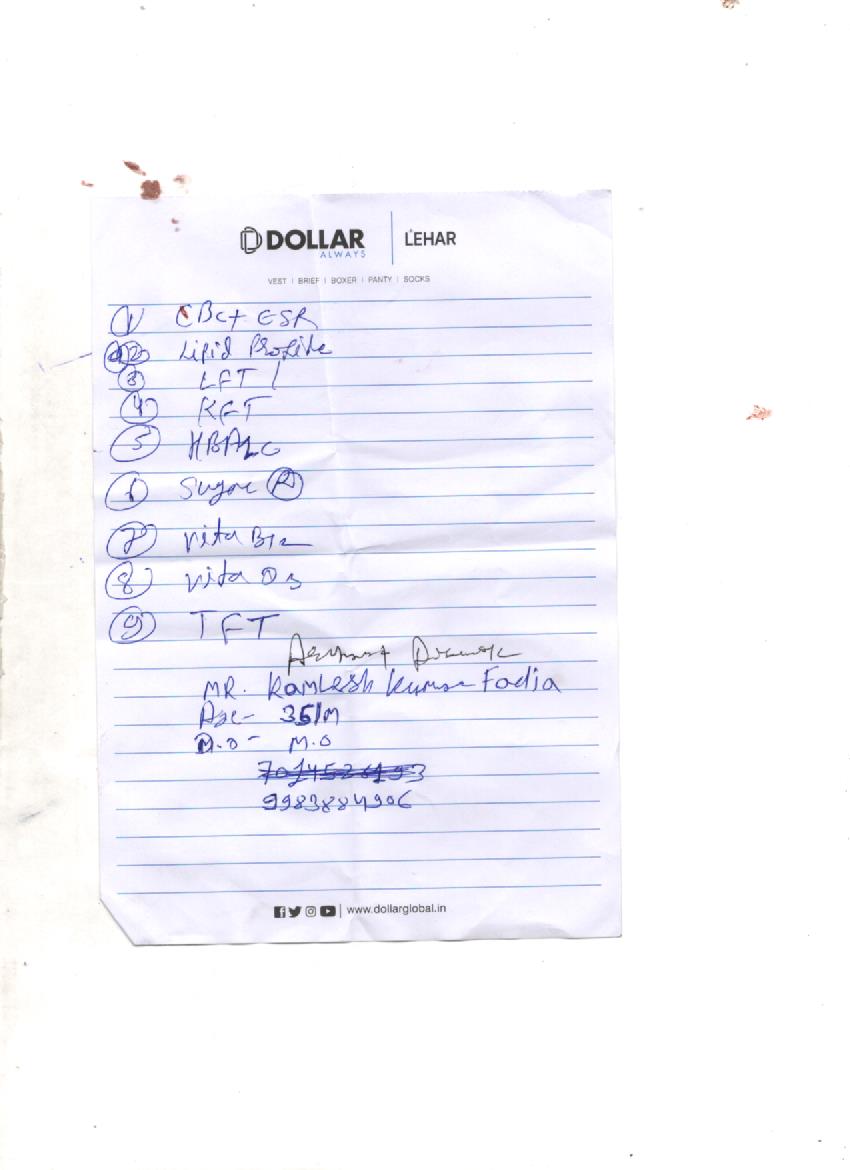 DOLLAR
ALWAYS
LEHAR
VEST | BRIEF | BOXER | PANTY | SOCKS
1 CBC+ ESR
2 Lipid Profile
3 LFT /
4 KFT
5 HBA1C
6 Sugar (R)
7 vita B12
8 vita D3
9 TFT
MR. Kamlesh Kumar Fadia
Age- 35/M
M.O- M.O
9983884906
www.dollarglobal.in